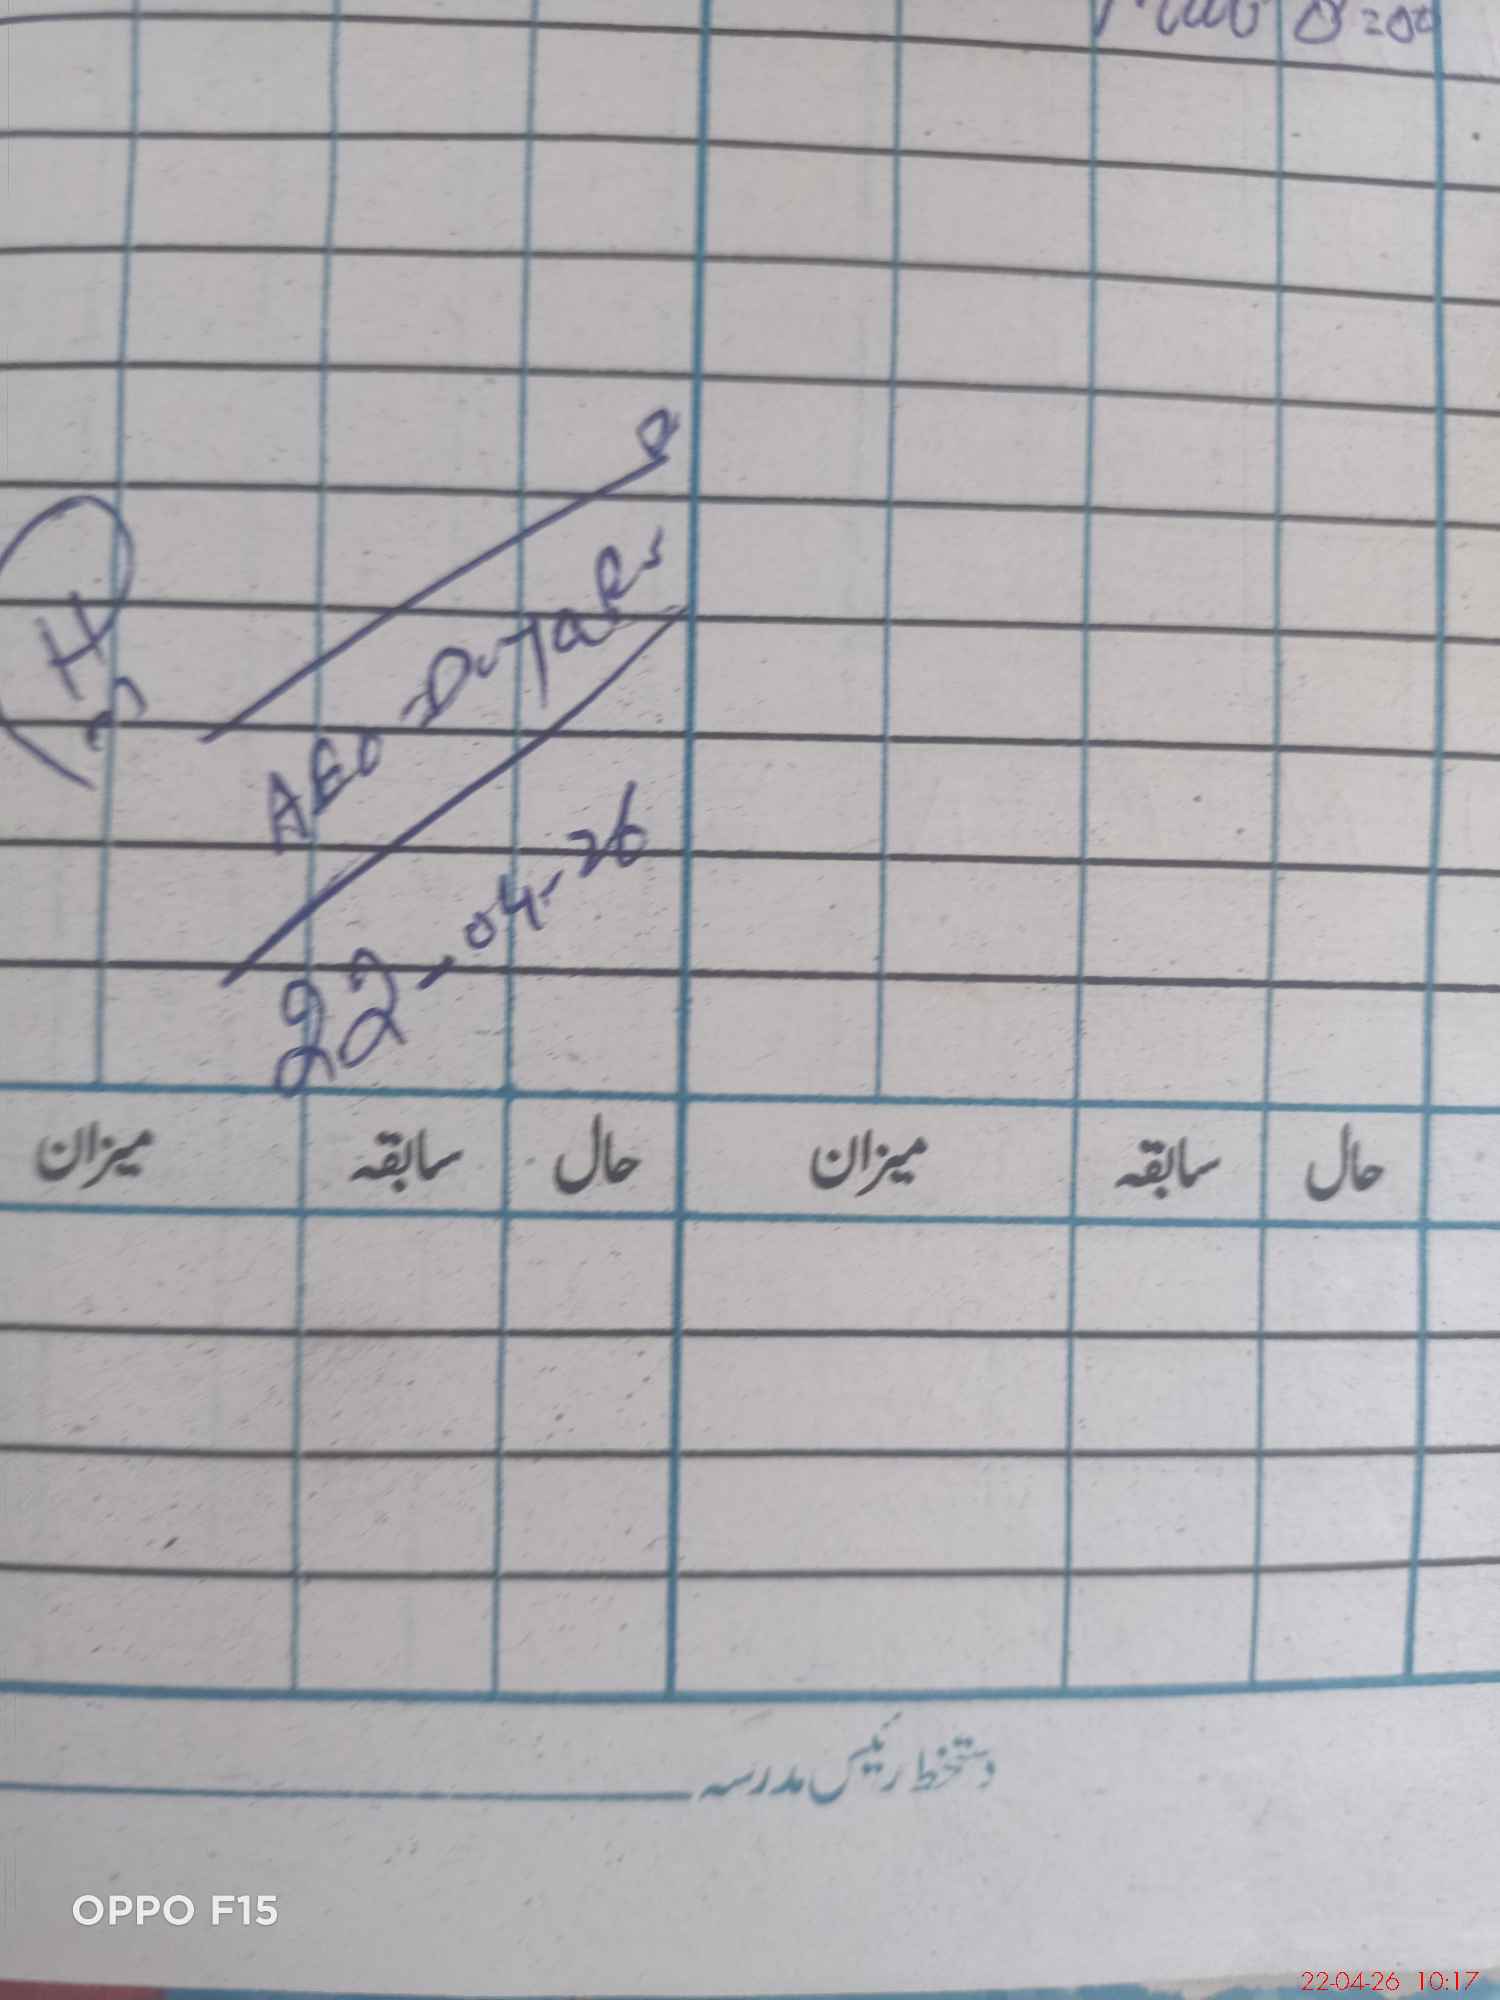 H
AEO Dutar
22-04-26
میزان سابقہ حال میزان سابقہ حال
دستخط رئیس مدرسہ
OPPO F15
22-04-26 10:17